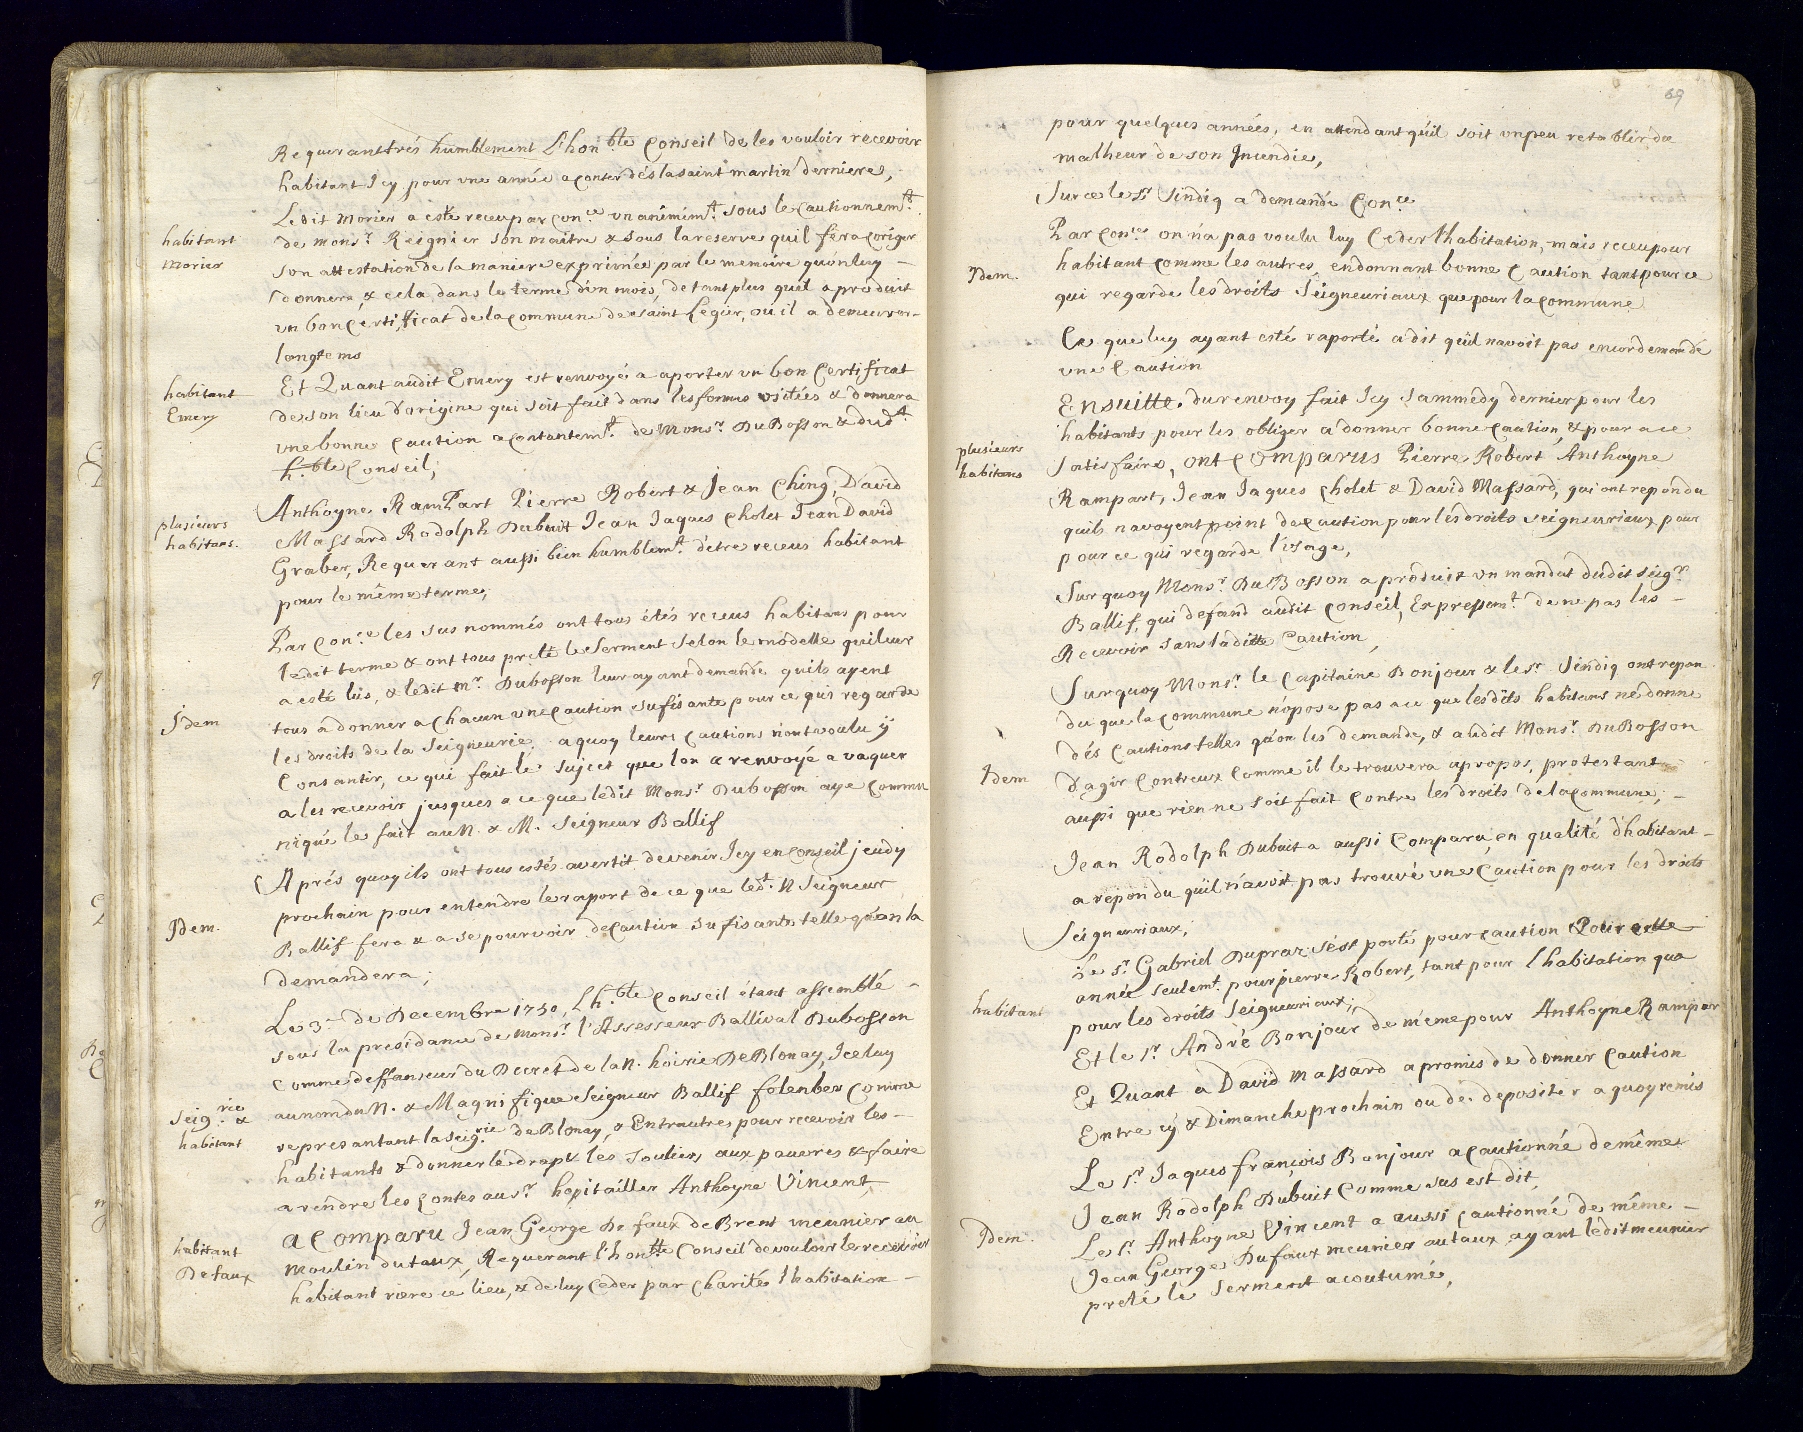 Requerant trés humblement L'hon.ble Conseil de les vouloir recevoir
habitant Jcy pour une année a conter dés la saint martin derniere,
Ledit Morier a esté receu par Con.ce unanimem.t sous le Cautionnem.t
habitant
Morier
de mons.r Reignier son maitre & sous la reserve quil fera Coriger
son attestation de la maniere exprimée par le memoire qu'on luy
donnera, & cela dans le terme d'un mois, de tant plus quil a produit
un bon Certificat de la Commune de saint Legier, ou il a demeuré
longtems
habitant
Emery
Et Quant audit Emery est renvoyé a aporter un bon Certificat
de son lieu d'origine qui soit fait dans les formes usitées & donnera
une bonne Caution a contantem.t de Mons.r DuBosson & dud.t
h.ble Conseil;
plusieurs
habitans.
Anthoyne Rampart Pierre Robert & Jean Ching, David
Massard Rodolph Dubuit Jean Jaques Cholet Jean David
Graber, Requerant aussi bien humblem.t d'etre receus habitant
pour le même terme,
Par Con.ce les sus nommés ont tous étés receus habitans pour
ledit terme & ont tous preté le Serment Selon le modelle qui leur
a esté lûs, & ledit M.r Dubosson leur ayant demandé quils ayent
Jdem
tous a donner a Chacun une Caution sufisante pour ce qui regarde
les droits de la Seigneurie, a quoy leurs Cautions n'ont voulu ÿ
Consantir, ce qui fait le sujet que lon a renvoyé a vaquer
a les recevoir jusques a ce que ledit Mons.r Dubosson aye commu
niqué le fait au N. & M. Seigneur Ballif
Aprés quoy ils ont tous estés avertit de venir Jcy en Conseil jeudy
Jdem.
prochain pour entendre le raport de ce que led.t N Seigneur
Ballif fera & a se pourvoir de Caution sufisante telle qu'on la
demandera;
Le 3.e de Decembre 1750, L'h.ble Conseil étant assemblé
sous la presidance de Mons.r l'Assesseur Ballival Dubosson
Comme deffanseur du Decret de la N. hoirie De Blonay, Jceluy
Seig.rie &
habitant
au nom du N. & Magnifique Seigneur Ballif folenber Comme
represantant la Seig.rie de Blonay, & Entrautres pour recevoir les
habitants & donner le drap & les souliers aux pauvres & faire
a rendre les Contes au S.r hopitallier Anthoyne Vincent,
habitant
Defaux
A Comparu Jean George De faux de Brent meunier au
Moulin du taux, Requerant l'hon.ble Conseil de vouloir le recevoir
habitant riere ce lieu, & de luy Ceder par Charité l'habitation
69
pour quelques années, en attendant quil soit un peu retablir du
malheur de son Jncendie,
Sur ce le S.r Sindiq a demandé Con.ce
Jdem.
Par Con.ce on n'a pas voulu luy Ceder l'habitation, mais receu pour
habitant Comme les autres, en donnant bonne Caution tant pour ce
qui regarde les droits Seigneuriaux que pour la Commune
Ce que luy ayant esté raporté a dit quil navoit pas encor demandé
une Caution
Ensuitte. du renvoy fait Jcy Sammedy dernier pour les
plusieurs
habitans
habitants pour les obliger a donner bonne Caution, & pour a ce
satisfaire, ont Comparus Pierre Robert Anthoyne
Rampart, Jean Jaques Cholet & David Massard, qui ont repondu
quils navoyent point de Caution pour les droits seigneuriaux pour
pour ce qui regarde l'usage,
Sur quoy Mons.r DuBosson a produit un mandat dudit Seig.r
Ballif, qui defand audit Conseil, Expressem.t de ne pas les
Recevoir sans la ditte Caution,
Sur quoy Mons.r le Capitaine Bonjour & le S.r Sindiq ont repon
du que la Commune n'opose pas a ce que les dits habitans ne donne
dés Cautions telles qu'on les demande, & audit Mons.r DuBosson
Jdem
d'agir Contreux Comme il le trouvera apropos, protestant
aussi que rien ne soit fait Contre les droits de la Commune;
Jean Rodolph Dubuit a aussi Comparu, en qualité d'habitant
a repondu quil n'avoit pas trouvé une Caution pour les droits
Seigneuriaux,
Le S.r Gabriel Dupraz s'est porté pour Caution Pour cette
année seulem.t pour pierre Robert, tant pour l'habitation que
habitant
pour les droits Seigneuriaux;
Et le S.r André Bonjour de meme pour Anthoyne Rampar
Et Quant a David Massard a promis de donner Caution
Entre cy & Dimanche prochain ou de depositer a quoy remis
Le S.r Jaques françois Bonjour a cautionné de même
Jean Rodolph Dubuit Comme sus est dit,
Jdem.
Le S.r Anthoyne Vincent a aussi Cautionné de même
Jean George Dufaux meunier au taux ayant ledit meunier
preté le Serment acoutumé,